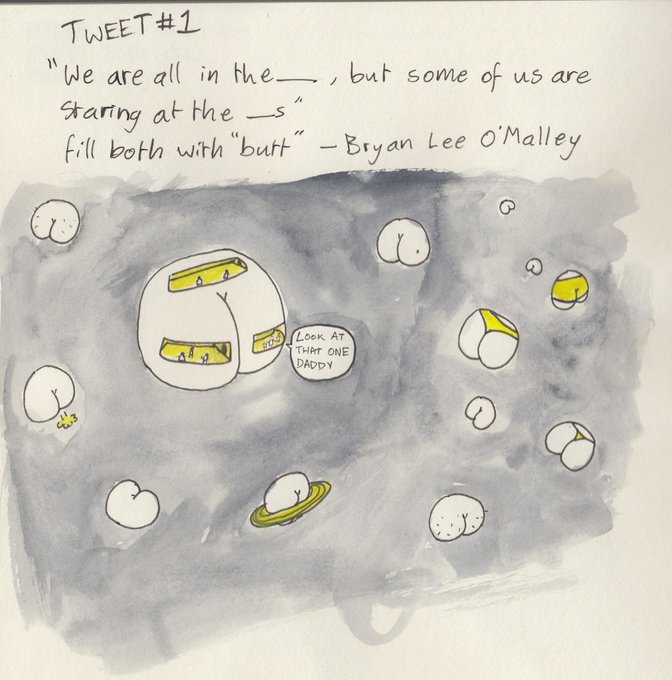 TWEET #1
"We are all in the ___ , but some of us are
staring at the __s"
fill both with "butt" - Bryan Lee O'Malley
LOOK AT
THAT ONE
DADDY